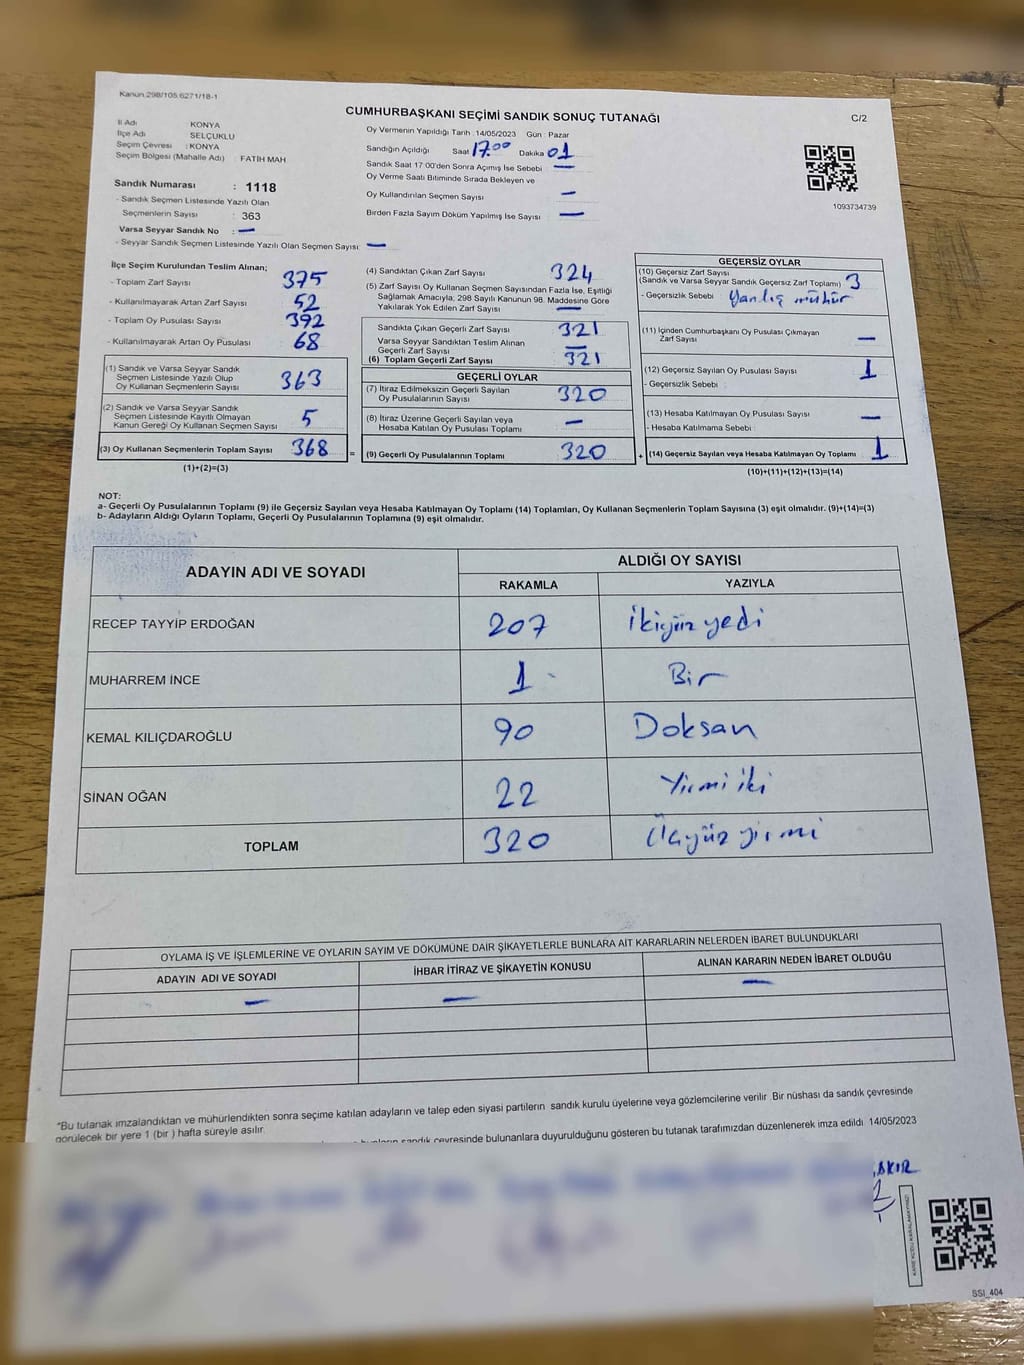 Kanun 298/105.6271/18-1
CUMHURBAŞKANI SEÇİMİ SANDIK SONUÇ TUTANAĞI
C/2
İl Adı KONYA
İlçe Adı SELÇUKLU
Seçim Çevresi : KONYA
Seçim Bölgesi (Mahalle Adı) : FATİH MAH
Sandık Numarası : 1118
- Sandık Seçmen Listesinde Yazılı Olan
Seçmenlerin Sayısı : 363
Varsa Seyyar Sandık No : —
- Seyyar Sandık Seçmen Listesinde Yazılı Olan Seçmen Sayısı: —
Oy Vermenin Yapıldığı Tarih : 14/05/2023 Gün : Pazar
Sandığın Açıldığı Saat 17.00 Dakika 01
Sandık Saat 17:00'den Sonra Açımış İse Sebebi —
Oy Verme Saati Bitiminde Sırada Bekleyen ve
Oy Kullandırılan Seçmen Sayısı —
Birden Fazla Sayım Döküm Yapılmış İse Sayısı —
1093734739
İlçe Seçim Kurulundan Teslim Alınan;
- Toplam Zarf Sayısı 375
- Kullanılmayarak Artan Zarf Sayısı 52
- Toplam Oy Pusulası Sayısı 392
- Kullanılmayarak Artan Oy Pusulası 68
(1) Sandık ve Varsa Seyyar Sandık
Seçmen Listesinde Yazılı Olup
Oy Kullanan Seçmenlerin Sayısı 363
(2) Sandık ve Varsa Seyyar Sandık
Seçmen Listesinde Kayıtlı Olmayan
Kanun Gereği Oy Kullanan Seçmen Sayısı 5
(3) Oy Kullanan Seçmenlerin Toplam Sayısı 368
(1)+(2)=(3)
=
(4) Sandıktan Çıkan Zarf Sayısı 324
(5) Zarf Sayısı Oy Kullanan Seçmen Sayısından Fazla İse, Eşitliği
Sağlamak Amacıyla; 298 Sayılı Kanunun 98. Maddesine Göre
Yakılarak Yok Edilen Zarf Sayısı —
Sandıkta Çıkan Geçerli Zarf Sayısı 321
Varsa Seyyar Sandıktan Teslim Alınan
Geçerli Zarf Sayısı —
(6) Toplam Geçerli Zarf Sayısı 321
GEÇERLİ OYLAR
(7) İtiraz Edilmeksizin Geçerli Sayılan
Oy Pusulalarının Sayısı 320
(8) İtiraz Üzerine Geçerli Sayılan veya
Hesaba Katılan Oy Pusulası Toplamı —
(9) Geçerli Oy Pusulalarının Toplamı 320
+
GEÇERSİZ OYLAR
(10) Geçersiz Zarf Sayısı
(Sandık ve Varsa Seyyar Sandık Geçersiz Zarf Toplamı) 3
- Geçersizlik Sebebi Yanlış mühür
(11) İçinden Cumhurbaşkanı Oy Pusulası Çıkmayan
Zarf Sayısı —
(12) Geçersiz Sayılan Oy Pusulası Sayısı 1
- Geçersizlik Sebebi
(13) Hesaba Katılmayan Oy Pusulası Sayısı —
- Hesaba Katılmama Sebebi
(14) Geçersiz Sayılan veya Hesaba Katılmayan Oy Toplamı 1
(10)+(11)+(12)+(13)=(14)
NOT:
a- Geçerli Oy Pusulalarının Toplamı (9) ile Geçersiz Sayılan veya Hesaba Katılmayan Oy Toplamı (14) Toplamları, Oy Kullanan Seçmenlerin Toplam Sayısına (3) eşit olmalıdır. (9)+(14)=(3)
b- Adayların Aldığı Oyların Toplamı, Geçerli Oy Pusulalarının Toplamına (9) eşit olmalıdır.
ADAYIN ADI VE SOYADI ALDIĞI OY SAYISI
RAKAMLA YAZIYLA
RECEP TAYYİP ERDOĞAN 207 İkiyüz yedi
MUHARREM İNCE 1 Bir
KEMAL KILIÇDAROĞLU 90 Doksan
SİNAN OĞAN 22 Yirmi iki
TOPLAM 320 Üçyüz yirmi
OYLAMA İŞ VE İŞLEMLERİNE VE OYLARIN SAYIM VE DÖKÜMÜNE DAİR ŞİKAYETLERLE BUNLARA AİT KARARLARIN NELERDEN İBARET BULUNDUKLARI
ADAYIN ADI VE SOYADI İHBAR İTİRAZ VE ŞİKAYETİN KONUSU ALINAN KARARIN NEDEN İBARET OLDUĞU
— — —
"Bu tutanak imzalandıktan ve mühürlendikten sonra seçime katılan adayların ve talep eden siyasi partilerin sandık kurulu üyelerine veya gözlemcilerine verilir .Bir nüshası da sandık çevresinde
görülecek bir yere 1 (bir ) hafta süreyle asılır.
sandık çevresinde bulunanlara duyurulduğunu gösteren bu tutanak tarafımızdan düzenlenerek imza edildi. 14/05/2023
KARE KODU KARALAMAYINIZ!
SSİ_404